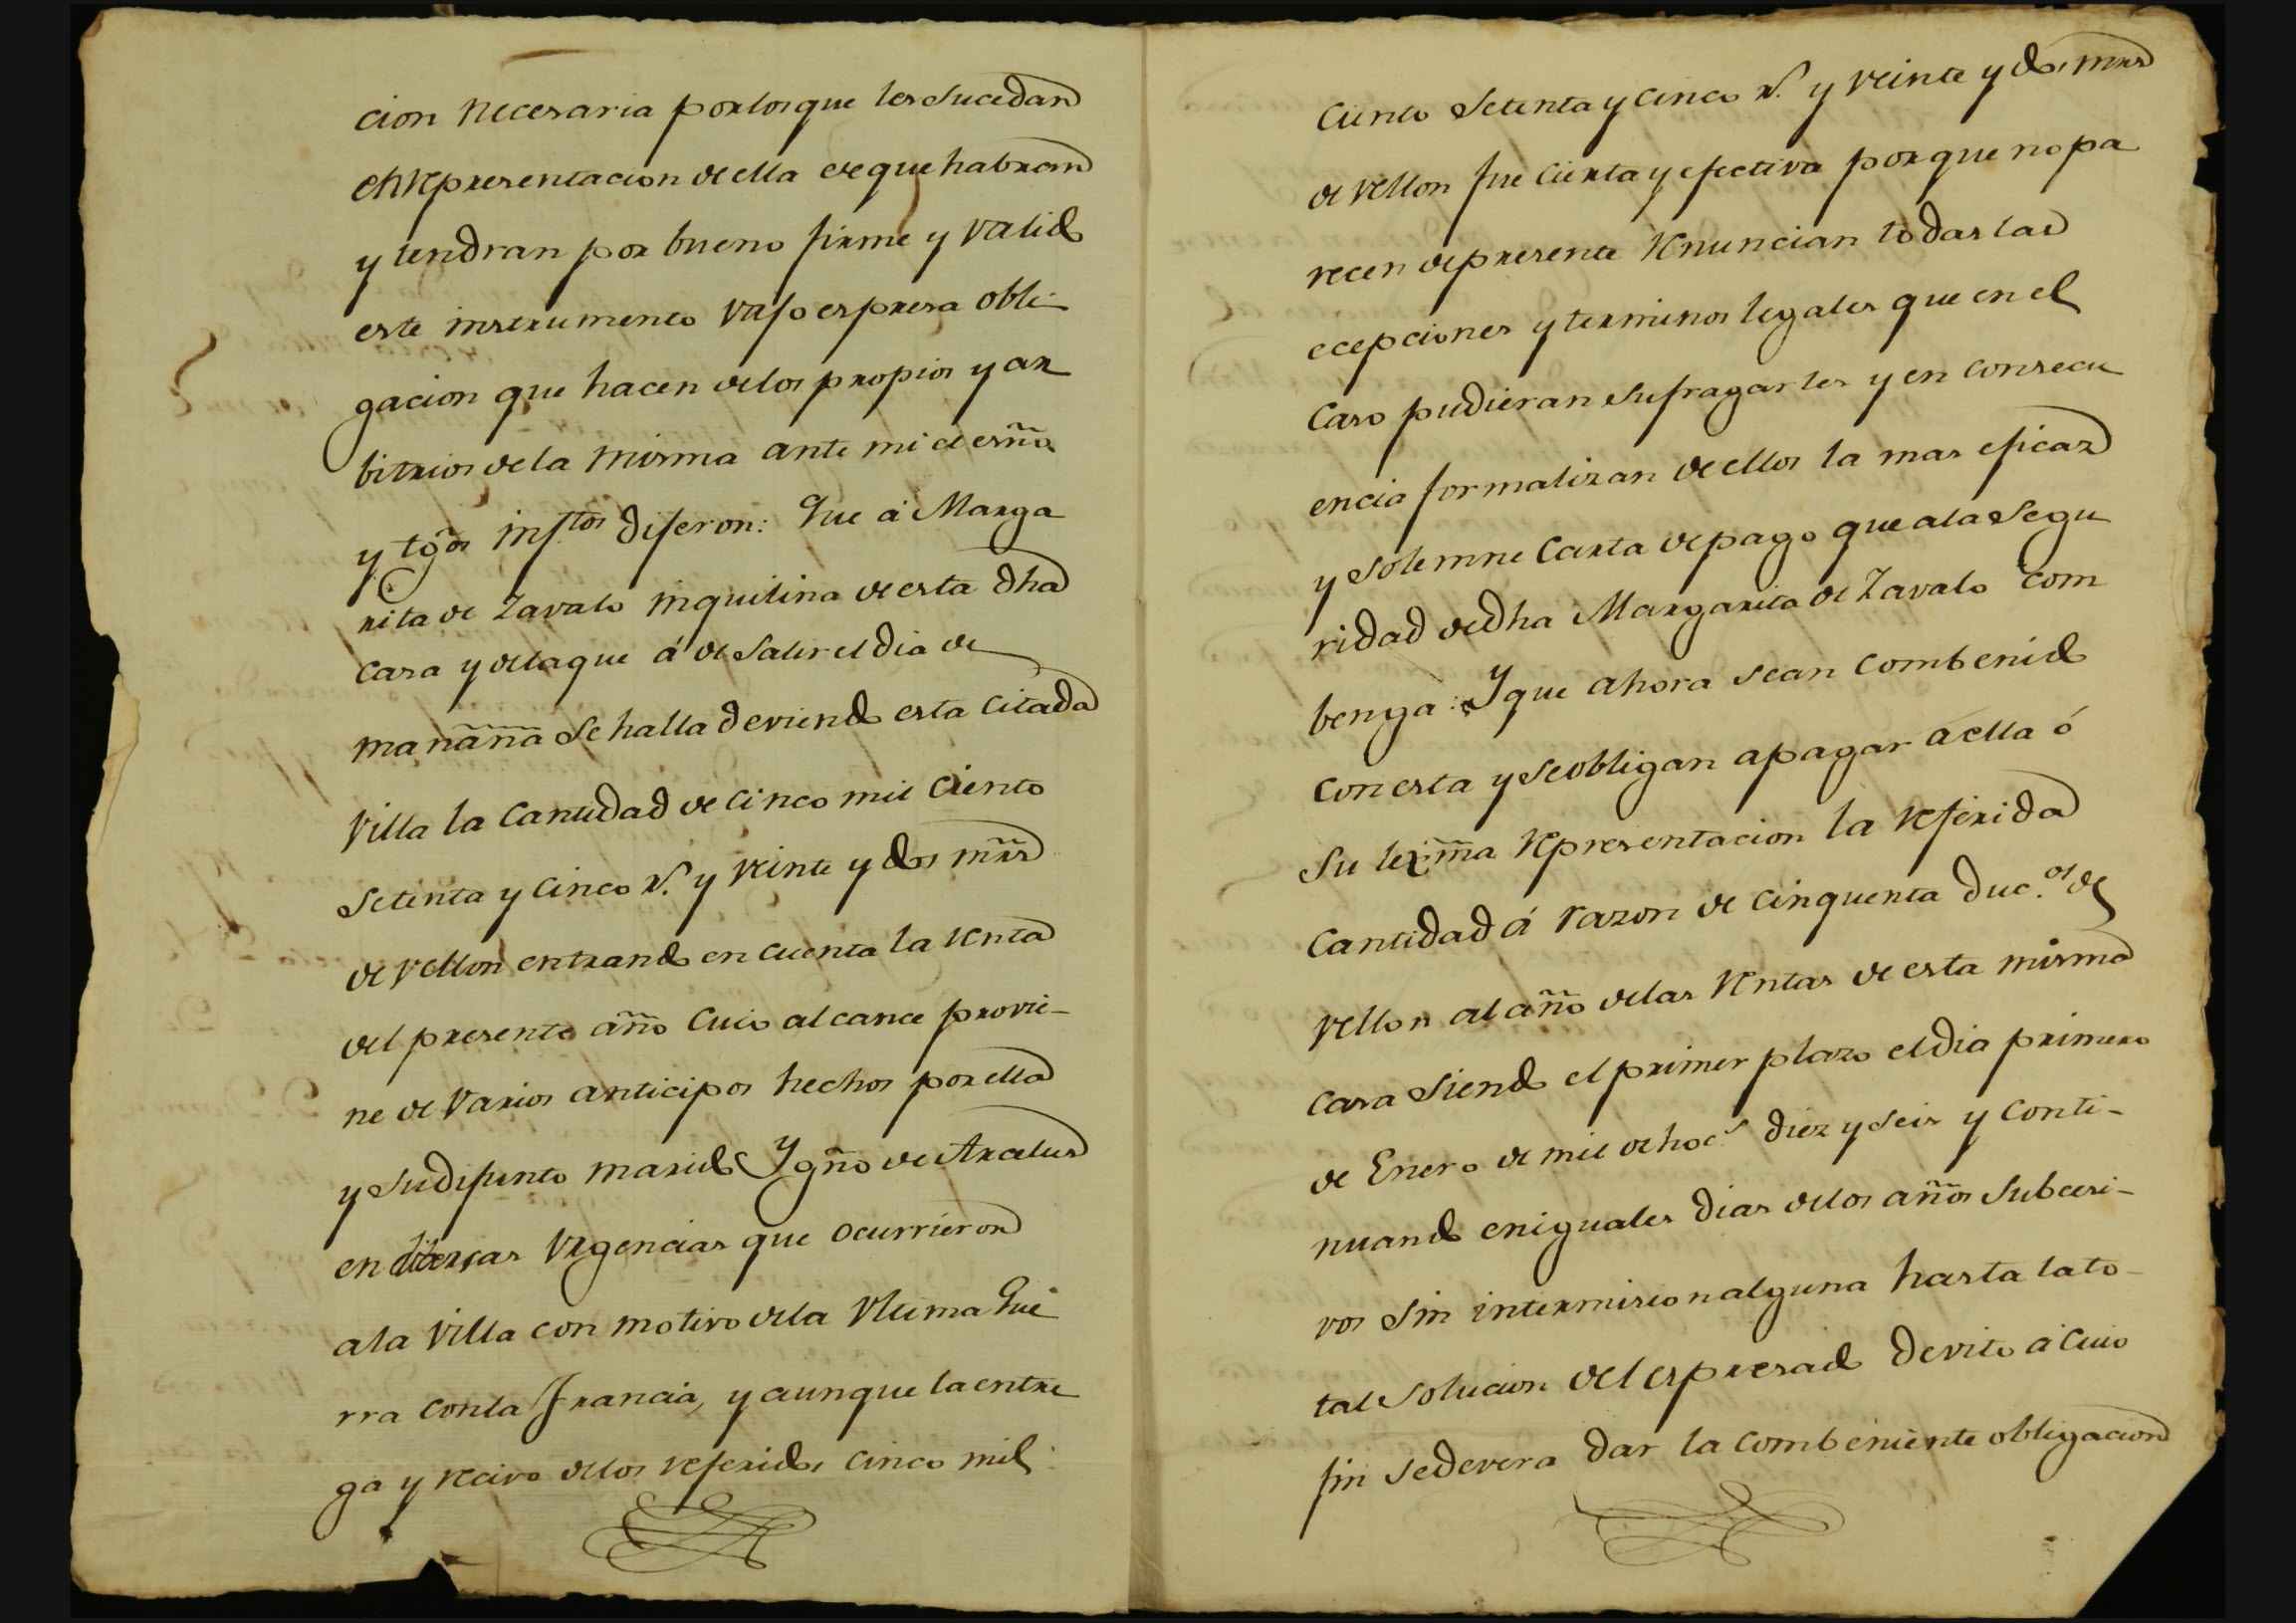 cion necesaria por los que les sucedan
en representacion de ella de que habran
y tendran por bueno firme y valido
este instrumento vajo espresa obli-
gacion que hacen de los propios y ar
bitrios de la misma ante mi el esñno
y tgos insftos dijeron: Que á Marga
rita de Zavalo inquilina de esta dha
casa y de la que á de salir el dia de
mañana se halla deviendo esta citada
villa la cantidad de cinco mil ciento
setenta y cinco rs. y veinte y dos mrs
de vellon entrando en cuenta la renta
del presente año cuio alcance provie-
ne de varios anticipos hechos por ella
y su difunto marido Ygño de Arcelus
en diversas urgencias que ocurrieron
a la villa con motivo de la ultima Gue
rra con la Francia, y aunque la entre
ga y recivo de los referidos cinco mil
ciento setenta y cinco rs. y veinte y dos mrs
de vellon fue cierta y efectiva por que no pa
recen de presente renuncian todas las
ecepciones y terminos legales que en el
caso pudieran sufragarles y en consecu
encia formalizan de ellos la mas eficaz
y solemne carta de pago que a la segu
ridad de dha Margarita de Zavalo com
benga: Y que ahora sean combenido
con esta y se obligan a pagar a ella ó
su lexma representacion la referida
cantidad á razon de cinquenta duc.os de
vellon al año de las rentas de esta misma
casa siendo el primer plazo el dia primero
de Enero de mil ochocs diez y seis y conti-
nuando en iguales dias de los años subcesi-
vos sin intermision alguna hasta la to-
tal solucion del espresado devito á cuio
fin se devera dar la combeniente obligacion